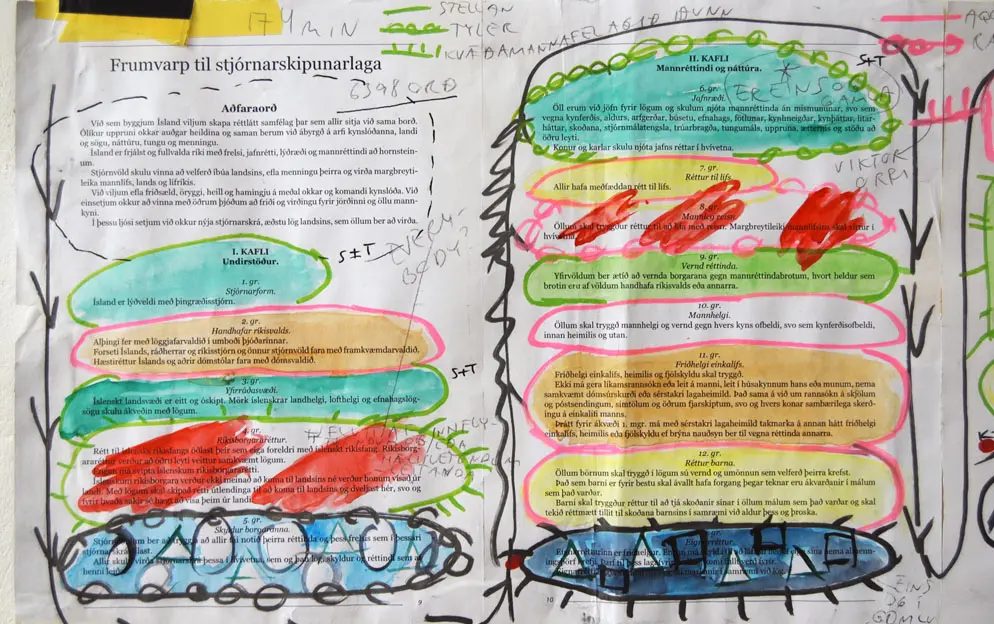 74 MIN
STELLAN
TYLER
KVÆÐAMANNAFELAGIÐ IÐUNN
Frumvarp til stjórnarskipunarlaga
6398 ORÐ
Aðfaraorð
Við sem byggjum Ísland viljum skapa réttlátt samfélag þar sem allir sitja við sama borð.
Ólíkur uppruni okkar auðgar heildina og saman berum við ábyrgð á arfi kynslóðanna, landi
og sögu, náttúru, tungu og menningu.
Ísland er frjálst og fullvalda ríki með frelsi, jafnrétti, lýðræði og mannréttindi að hornstein-
um.
Stjórnvöld skulu vinna að velferð íbúa landsins, efla menningu þeirra og virða margbreyti-
leika mannlífs, lands og lífríkis.
Við viljum efla friðsæld, öryggi, heill og hamingju á meðal okkar og komandi kynslóða. Við
einsetjum okkur að vinna með öðrum þjóðum að friði og virðingu fyrir jörðinni og öllu mann-
kyni.
Í þessu ljósi setjum við okkur nýja stjórnarskrá, æðstu lög landsins, sem öllum ber að virða.
S±T
I. KAFLI
Undirstöður.
1. gr.
Stjórnarform.
Ísland er lýðveldi með þingræðisstjórn.
2. gr.
Handhafar ríkisvalds.
Alþingi fer með löggjafarvaldið í umboði þjóðarinnar.
Forseti Íslands, ráðherrar og ríkisstjórn og önnur stjórnvöld fara með framkvæmdarvaldið.
Hæstiréttur Íslands og aðrir dómstólar fara með dómsvaldið.
S+T
3. gr.
Yfirráðasvæði.
Íslenskt landsvæði er eitt og óskipt. Mörk íslenskrar landhelgi, lofthelgi og efnahagslög-
sögu skulu ákveðin með lögum.
4. gr.
Ríkisborgararéttur.
Rétt til íslensks ríkisfangs öðlast þeir sem eiga foreldri með íslenskt ríkisfang. Ríkisborg-
araréttur verður að öðru leyti veittur samkvæmt lögum.
Engan má svipta íslenskum ríkisborgararétti.
Íslenskum ríkisborgara verður ekki meinað að koma til landsins né verður honum vísað úr
landi. Með lögum skal skipað rétti útlendinga til að koma til landsins og dveljast hér, svo og
fyrir hvaða sakir sé hægt að vísa þeim úr landi.
5. gr.
Skyldur borgaranna.
9
II. KAFLI
Mannréttindi og náttúra.
S+T
6. gr.
Jafnræði.
Öll erum við jöfn fyrir lögum og skulum njóta mannréttinda án mismununar, svo sem
vegna kynferðis, aldurs, arfgerðar, búsetu, efnahags, fötlunar, kynhneigðar, kynþáttar, litar-
háttar, skoðana, stjórnmálatengsla, trúarbragða, tungumáls, uppruna, ætternis og stöðu að
öðru leyti.
Konur og karlar skulu njóta jafns réttar í hvívetna.
VIKTOR
ORRI
7. gr.
Réttur til lífs.
Allir hafa meðfæddan rétt til lífs.
8. gr.
Mannleg reisn.
Öllum skal tryggður réttur til að lifa með reisn. Margbreytileiki mannlífsins skal virtur í
hvívetna.
9. gr.
Vernd réttinda.
Yfirvöldum ber ætíð að vernda borgarana gegn mannréttindabrotum, hvort heldur sem
brotin eru af völdum handhafa ríkisvalds eða annarra.
10. gr.
Mannhelgi.
Öllum skal tryggð mannhelgi og vernd gegn hvers kyns ofbeldi, svo sem kynferðisofbeldi,
innan heimilis og utan.
11. gr.
Friðhelgi einkalífs.
Friðhelgi einkalífs, heimilis og fjölskyldu skal tryggð.
Ekki má gera líkamsrannsókn eða leit á manni, leit í húsakynnum hans eða munum, nema
samkvæmt dómsúrskurði eða sérstakri lagaheimild. Það sama á við um rannsókn á skjölum
og póstsendingum, símtölum og öðrum fjarskiptum, svo og hvers konar sambærilega skerð-
ingu á einkalífi manns.
Þrátt fyrir ákvæði 1. mgr. má með sérstakri lagaheimild takmarka á annan hátt friðhelgi
einkalífs, heimilis eða fjölskyldu ef brýna nauðsyn ber til vegna réttinda annarra.
12. gr.
Réttur barna.
Öllum börnum skal tryggð í lögum sú vernd og umönnun sem velferð þeirra krefst.
Það sem barni er fyrir bestu skal ávallt hafa forgang þegar teknar eru ákvarðanir í málum
sem það varðar.
Barni skal tryggður réttur til að tjá skoðanir sínar í öllum málum sem það varðar og skal
tekið réttmætt tillit til skoðana barnsins í samræmi við aldur þess og þroska.
10